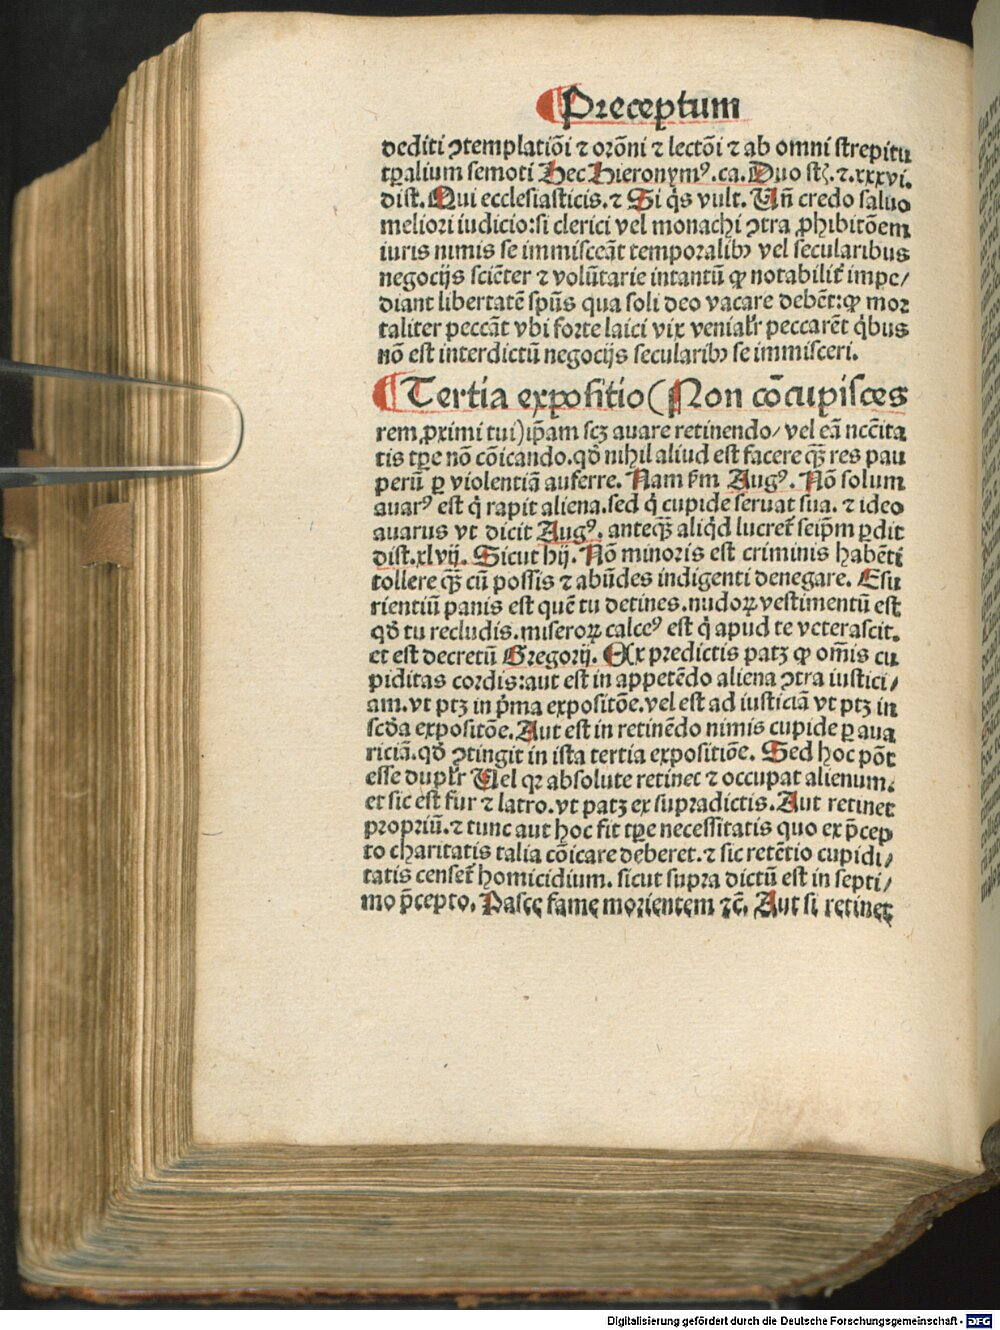 ¶Preceptum
dediti ꝯtemplatiōi ⁊ orōni ⁊ lectōi ⁊ ab omni strepitu
tꝑalium semoti Hec Hieronymꝰ.ca.Duo st̄.⁊.xxxvi.
dist.Qui ecclesiasticis.⁊ Si q̇s vult. Uñ credo saluo
meliori iudicio:si clerici vel monachi ꝯtra ꝓhibitōem
iuris nimis se immisceāt temporalibꝫ vel secularibus
negocijs sciēter ⁊ volūtarie intantū ꝙ notabilit̄ impe/
diant libertatē spūs qua soli deo vacare debēt:ꝙ mor
taliter peccāt vbi forte laici vix venialr̄ peccarēt q̇bus
nō est interdictū negocijs secularibꝫ se immisceri.
¶Tertia expositio(Non cōcupisces
rem ꝓximi tui)ip̄am scꝫ auare retinendo/ vel eā nccīta
tis tꝑe nō cōicando.qd̄ nihil aliud est facere qꝫ̄ res pau
perū ꝑ violentiā auferre. Nam k̄m Augꝰ. Nō solum
auarꝰ est q̇ rapit aliena.sed q̇ cupide seruat sua. ⁊ ideo
auarus vt dicit Augꝰ. anteqꝫ̄ aliq̇d lucret̄ seip̄m ꝑdit
dist.xlvij. Sicut hij. Nō minoris est criminis habēti
tollere qꝫ̄ cū possis ⁊ abūdes indigenti denegare. Esu
rientiū panis est quē tu detines.nudoꝝ vestimentū est
qd̄ tu recludis.miseroꝝ calceꝰ est q̇ apud te veterascit.
et est decretū Gregorij. Ex predictis patꝫ ꝙ om̄is cu
piditas cordis:aut est in appetēdo aliena ꝯtra iustici/
am.vt ptꝫ in p̄ma expositōe.vel est ad iusticiā vt ptꝫ in
scd̄a expositōe. Aut est in retinēdo nimis cupide ꝑ aua
riciā.qd̄ ꝯtingit in ista tertia expositiōe. Sed hoc pōt
esse duplr̄ Uel qꝛ absolute retinet ⁊ occupat alienum.
et sic est fur ⁊ latro.vt patꝫ ex supradictis.Aut retinet
propriū.⁊ tunc aut hoc fit tꝑe necessitatis quo ex p̄cep
to charitatis talia cōicare deberet.⁊ sic retētio cupidi/
tatis censet̄ homicidium. sicut supra dictū est in septi/
mo p̄cepto. Pasce fame morientem ⁊c̄. Aut si retinet
Digitalisierung gefördert durch die Deutsche Forschungsgemeinschaft - DFG